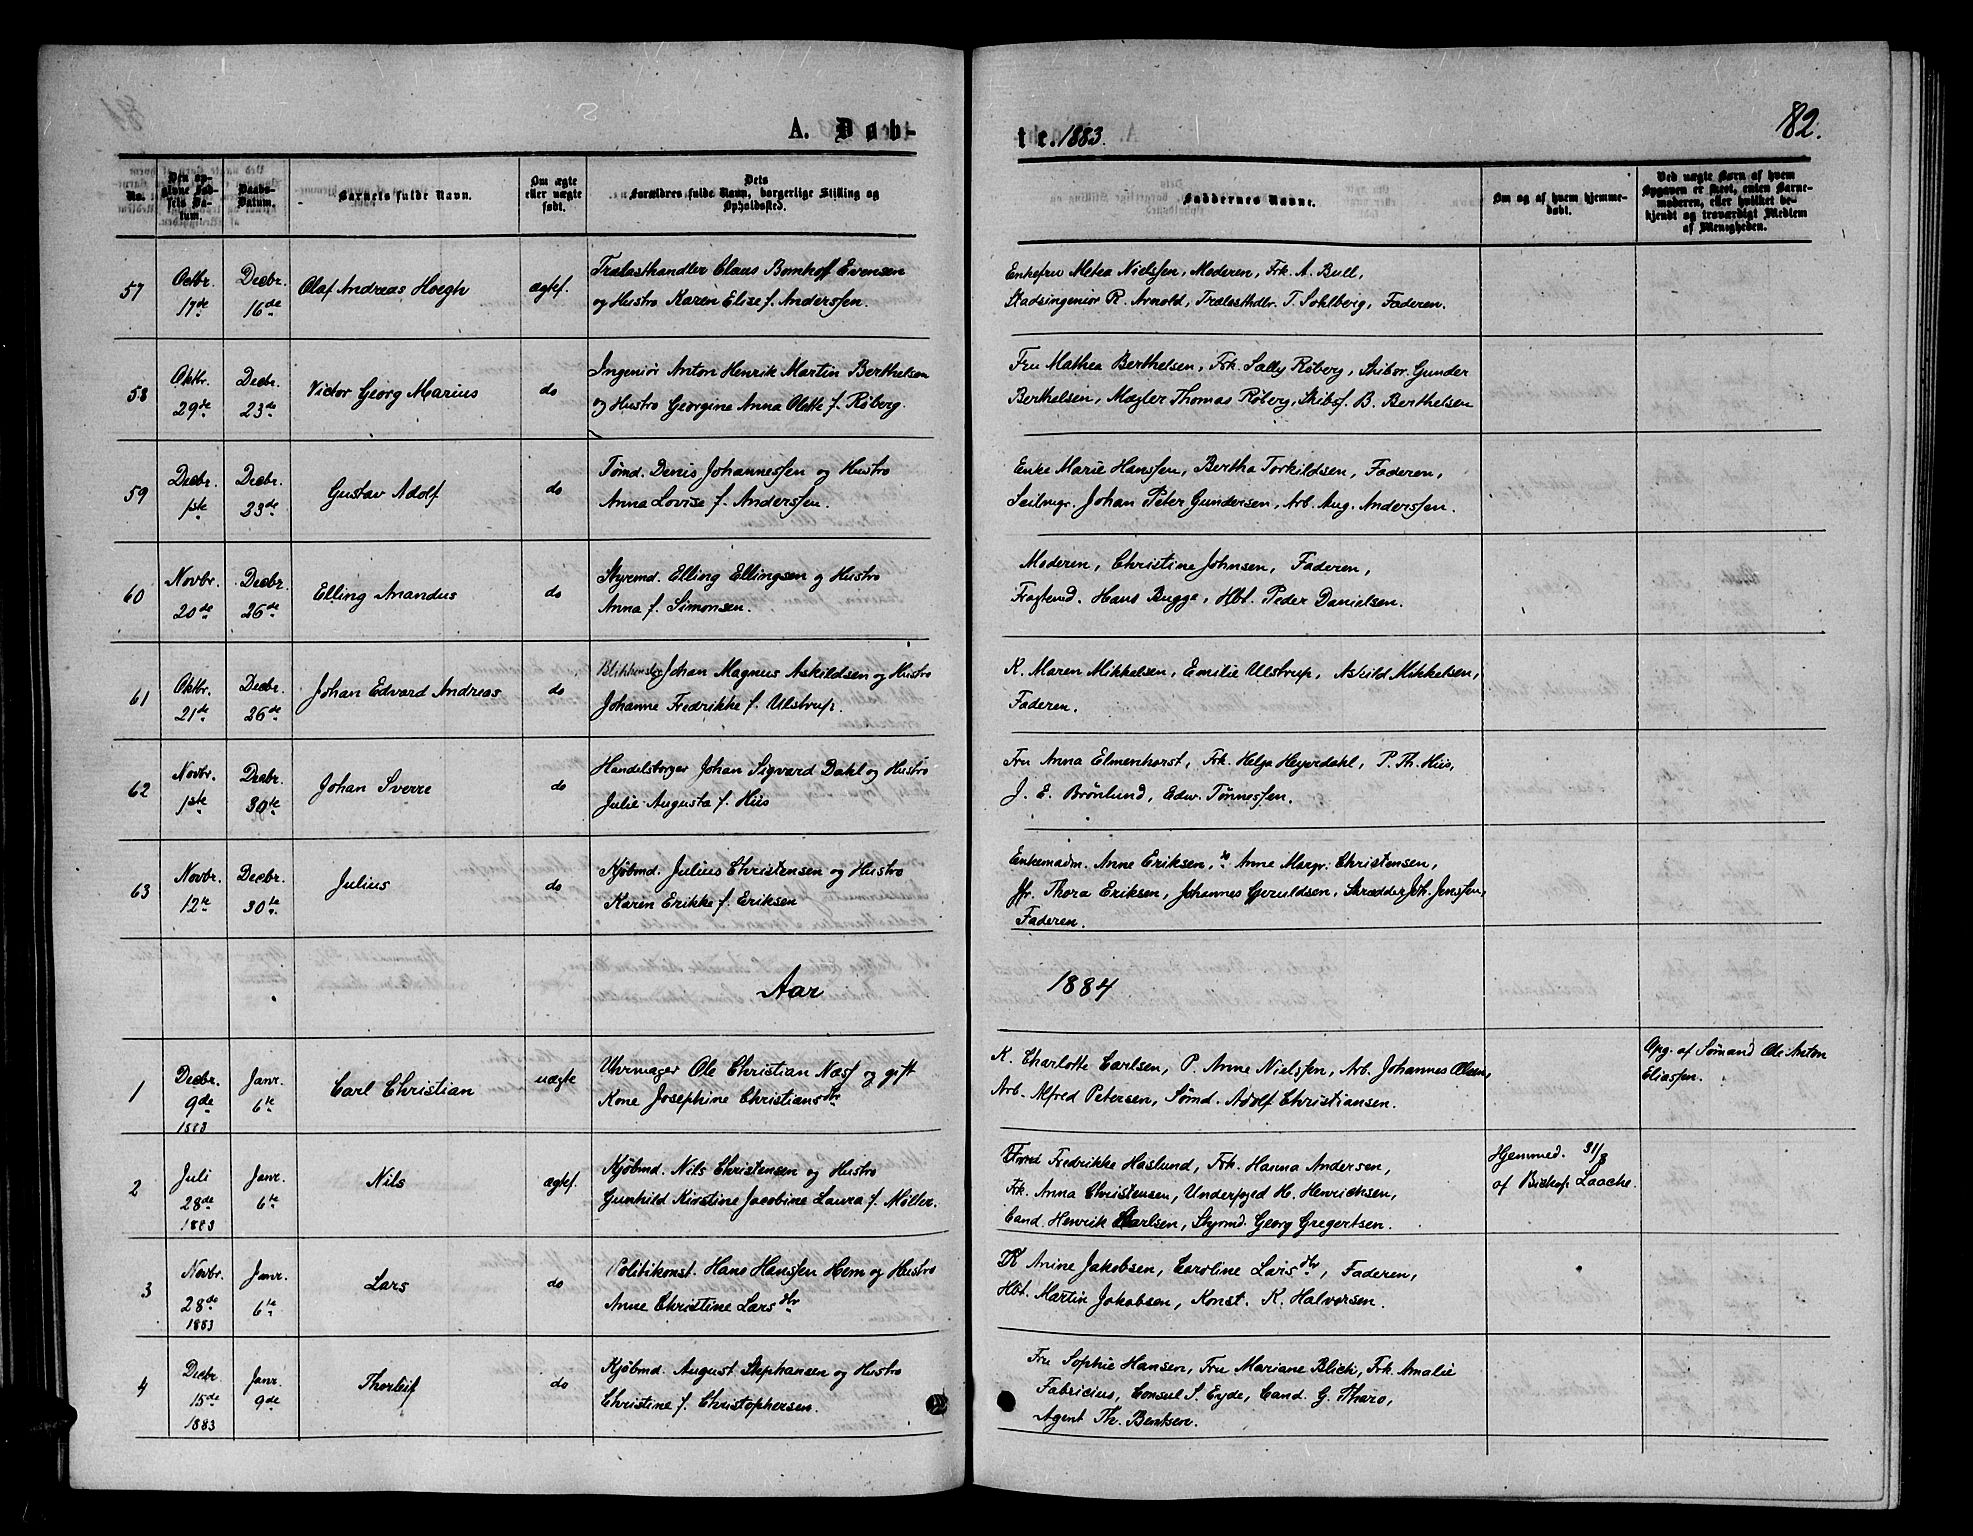 A. Døb-
te. 1883.
82.
No.
Den op-
givne Fød-
sels Da-
tum.
Daabs-
Datum.
Barnets fulde Navn.
Om ægte
eller uægte
født.
Dets
Forældres fulde Navn, borgerlige Stilling og
Opholdssted.
Faddernes Navne.
Om og af hvem hjemme-
døbt.
Ved uægte Børn af hvem
Opgaven er skeet, enten Barne-
moderen, eller hvilket be-
kjendt og troværdigt Medlem
af Menigheden.
57
Octbr.
17de
Decbr.
16de
Olaf Andreas Hoegh
ægtef.
Trælasthandler Claus Bomhoff Evensen
og Hustro Karen Elise f. Anderssen.
Enkefru Metea Nielssen, Moderen, Frk. A. Bull,
Stadsingeniør R. Arnold, Trælasthdlr. T. Sohlberg, Faderen.
58
Oktbr.
29de
Decbr.
23de
Victor Georg Marius
do
Ingeniør Anton Henrik Martin Berthelsen
og Hustro Georgine Anna Olette f. Røberg.
Fru Mathea Berthelsen, Frk. Sally Røberg, Skibsr. Gunder
Berthelsen, Mægler Thomas Røberg, Skibsf. B. Berthelsen
59
Decbr.
1ste
Decbr.
23de
Gustav Adolf
do
Tømd. Denis Johannessen og Hustro
Anna Lovise f. Anderssen.
Enke Marie Hanssen, Bertha Torkildsen, Faderen,
Seilmgr. Johan Peter Gundersen, Arb. Aug. Anderssen.
60
Novbr.
20de
Decbr.
26de
Elling Anandus
do
Styrmd. Elling Ellingsen og Hustro
Anna f. Simonsen.
Moderen, Christine Johnsen, Faderen,
Fragtemd. Hans Bugge, Hbt. Peder Danielsen.
61
Oktbr.
21de
Decbr.
26de
Johan Edvard Andreas
do
Blikkensl. Johan Magnus Askildsen og Hustro
Johanne Fredrikke f. Ulstrup.
K. Maren Mikkelsen, Emilie Ulstrup, Askild Mikkelsen,
Faderen.
62
Novbr.
1ste
Decbr.
30te
Johan Sverre
do
Handelsborger Johan Sigvard Dahl og Hustro
Julie Augusta f. Hiis
Fru Anna Elmenhorst, Frk. Helga Heyerdahl, P. Th. Hiis,
J. E. Brønlund, Edw. Tønnessen.
63
Novbr.
12te
Decbr.
30te
Julius
do
Kjøbmd. Julius Christensen og Hustro
Karen Erikke f. Eriksen
Enkemadm. Anne Eriksen, do Anne Margr. Christensen,
Jfr. Thora Eriksen, Johannes Geruldsen, Skrædder Joh. Jenssen,
Faderen.
Aar
1884
1
Decbr.
9de
1883
Janr.
6te
Carl Christian
uægte
Uhrmager Ole Christian Næss og gift
Kone Josephine Christiansdtr
K. Charlotte Carlsen, P. Anne Nielssen, Arb. Johannes Olsen,
Arb. Alfred Petersen, Sømd. Adolf Christiansen.
Opg. af Sømand Ole Anton
Eliassen.
2
Juli
28de
1883
Janr.
6te
Nils
ægtef.
Kjøbmd. Nils Christensen og Hustro
Gunhild Kirstine Jacobine Laura f. Møller.
Fru Fredrikke Haslund, Frk. Hanna Andersen,
Frk. Anna Christensen, Underfoged H. Henrichsen,
Cand. Henrik Carlsen, Styrmd. Georg Gregertsen.
Hjemmed. 31/8
af Biskop Laache.
3
Novbr.
28de
1883
Janr.
6te
Lars
do
Politikonst. Hans Hanssen Hem og Hustro
Anne Christine Larsdtr
K Anine Jakobsen, Caroline Larsdtr, Faderen,
Hbt. Martin Jakobsen, Konst. K. Halvorsen.
4
Decbr
15de
1883
Janr.
9de
Thorleif
do
Kjøbmd. August Stephansen og Hustro
Christine f. Christophersen.
Fru Sophie Hansen, Fru Mariane Blich, Frk. Amalie
Fabricius, Consul S. Eyde, Cand. G. Tharo,
Agent Th. Bentsen.